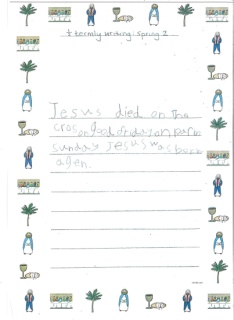 ½ termly writing: Spring 2
Jesus died on the
cros on good friday on parm
sunday Jesus was born
agen.